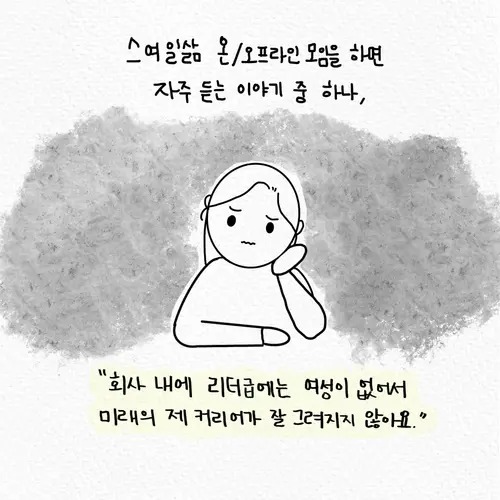 스여일삶 온/오프라인 모임을 하면
자주 듣는 이야기 중 하나,
"회사 내에 리더급에는 여성이 없어서
미래의 제 커리어가 잘 그려지지 않아요."